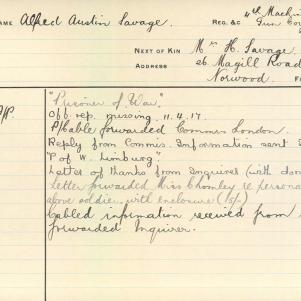 NAME Alfred Austin Savage. REG. &c 4th Machine
Gun Co
NEXT OF KIN Mr H. Savage.
ADDRESS 26 Magill Road
Norwood.
"Prisoner of War"
Off. rep. missing. 11.4.17.
P/Cable forwarded Commis. London.
Reply from Commis. Information sent
"P of W. Limburg."
Letter of thanks from Inquirer (with don
Letter forwarded Miss Chomley re persona
above soldier with enclosure (5/-)
Cabled information received from
forwarded Inquirer.